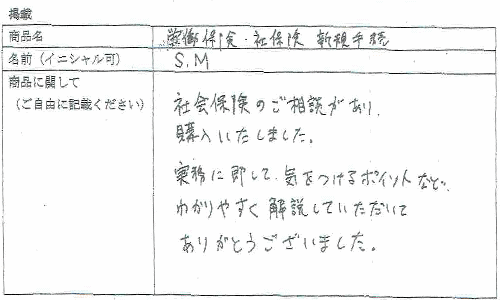 掲載
商品名 労働保険・社保険 新規手続
名前（イニシャル可） S.M
商品に関して
（ご自由に記載ください）
社会保険のご相談があり、
購入いたしました。
実務に即して、気をつけるポイントなど、
わかりやすく解説していただいて
ありがとうございました。